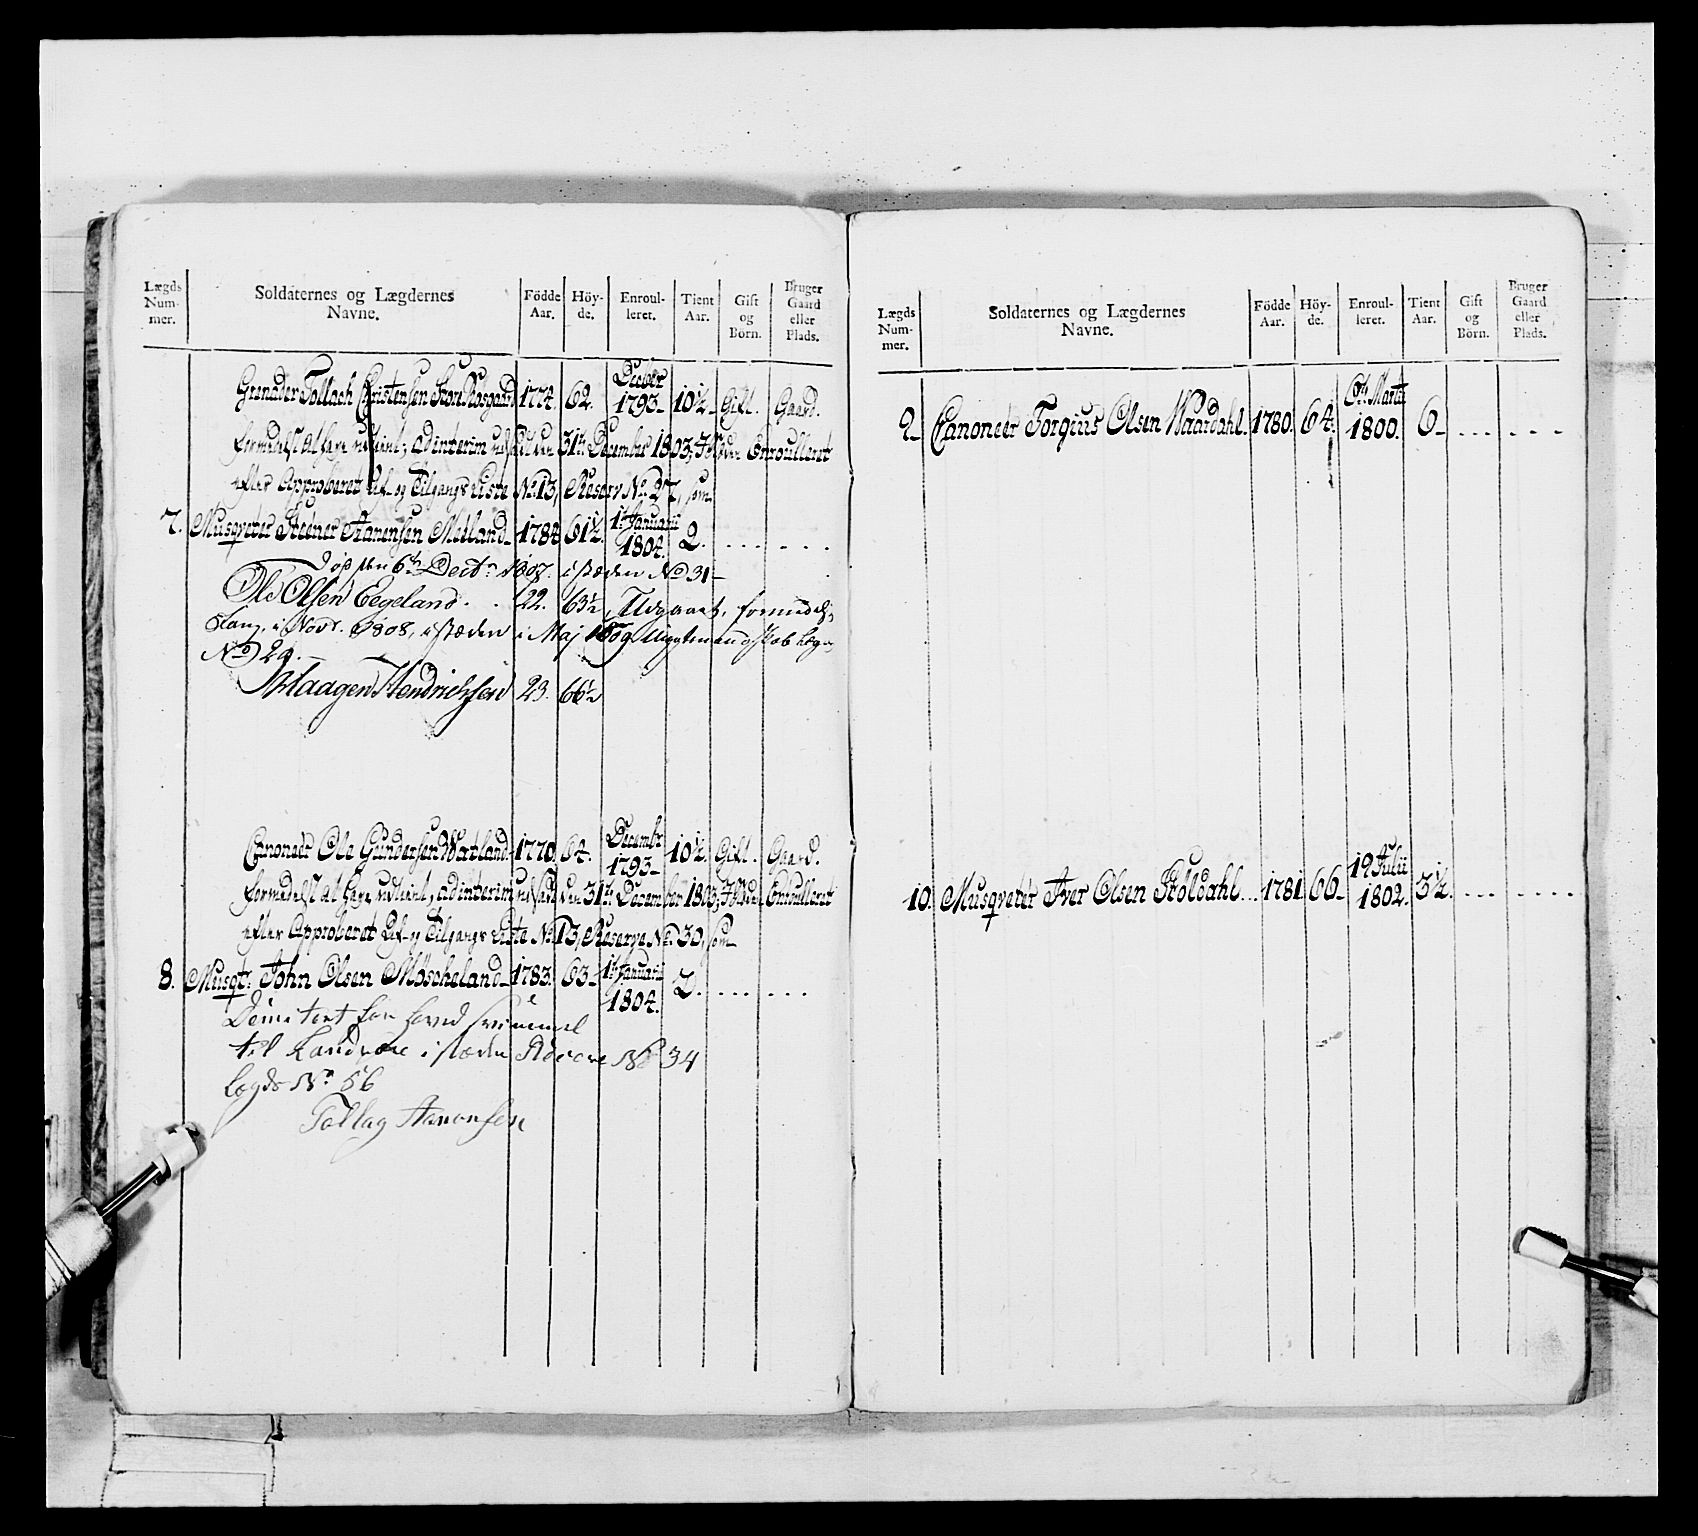 Lægds Num- mer.
Soldaternes og Lægdernes Navne.
Födde Aar.
Höy- de.
Enroul- leret.
Tient Aar.
Gift og Börn.
Bruger Gaard eller Plads.
Grenader Tollach Christensen Store Rosgaard 1774. 62. Decbr 1793 10½ Gift. Gaard.
formedelst at have udtient, ad interim udsadt den 31te December 1803, Enroulleret
efter Approberet Af- og Tilgangs Liste No. 13, Reserv No. 27, som
7. Musqveter Steener Aanensen Meiland 1784 61½ 1te Januarii 1804. 2. . . . . . .
Död den 6te Decbr 1807. i stæden No 31
Ole Olsen Eegeland . . 22. 63½, Udgaaet, formedelst
i Novr. 1808, i stæden i Maj 1809
No 29.
Haagen Hendrichsen 23. 66½
Canoneer Ole Gundersen Vatland 1770. 64. Decembr 1793 10½. Gift. Gaard.
formedelst at have udtient, ad interim udsadt den 31te December 1803, Enroulleret
efter Approberet Af- og Tilgangs Liste No. 13, Reserve No. 30, som
8. Musqt: John Olsen Möscheland 1783. 63 1te Januarii 1804. 2. . . . . . .
Dimitert for
til Landvære i stæden Reserve No 34
Lægds No 56
Tollag Aanonsen
Lægds Num- mer.
Soldaternes og Lægdernes Navne.
Födde Aar.
Höy- de.
Enroul- leret.
Tient Aar.
Gift og Börn.
Bruger Gaard eller Plads.
9. Canoneer Torgius Olsen Waardahl. 1780. 64. 6te Martii 1800. 6 . . . . . .
10. Musqveter Iver Olsen Stöldahl . . 1781 66 19 Julii 1802. 3½. . . . . . .